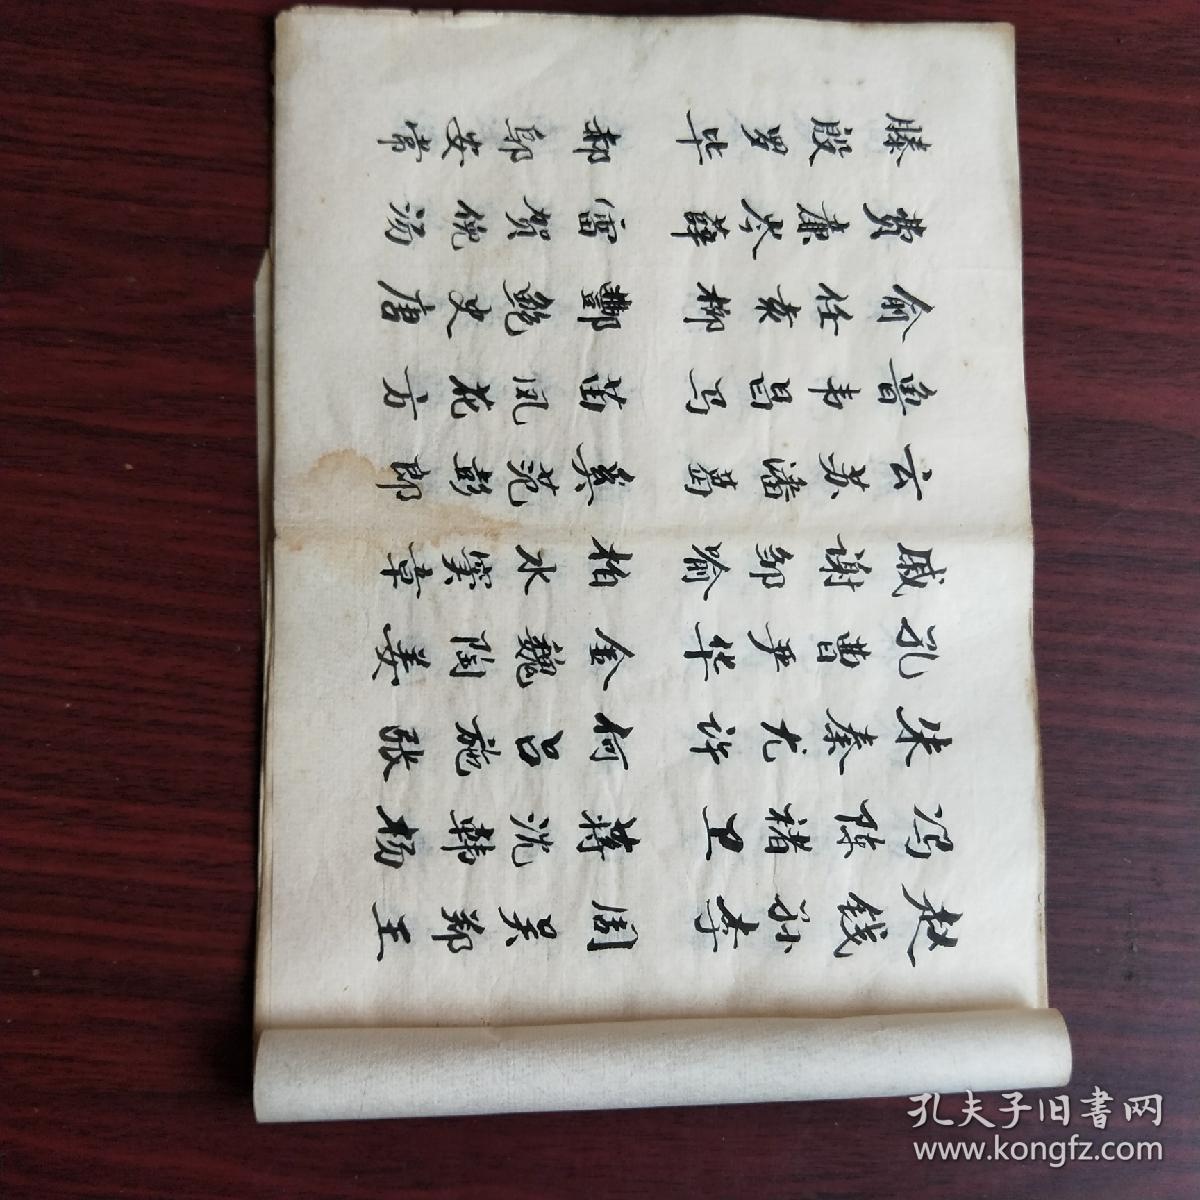 赵钱孙李 周吴郑王
冯陈褚卫 蒋沈韩杨
朱秦尤许 何吕施张
孔曹严华 金魏陶姜
戚谢邹喻 柏水窦章
云苏潘葛 奚范彭郎
鲁韦昌马 苗凤花方
俞任袁柳 酆鲍史唐
费廉岑薛 雷贺倪汤
滕殷罗毕 郝邬安常
孔夫子旧書网
www.kongfz.com